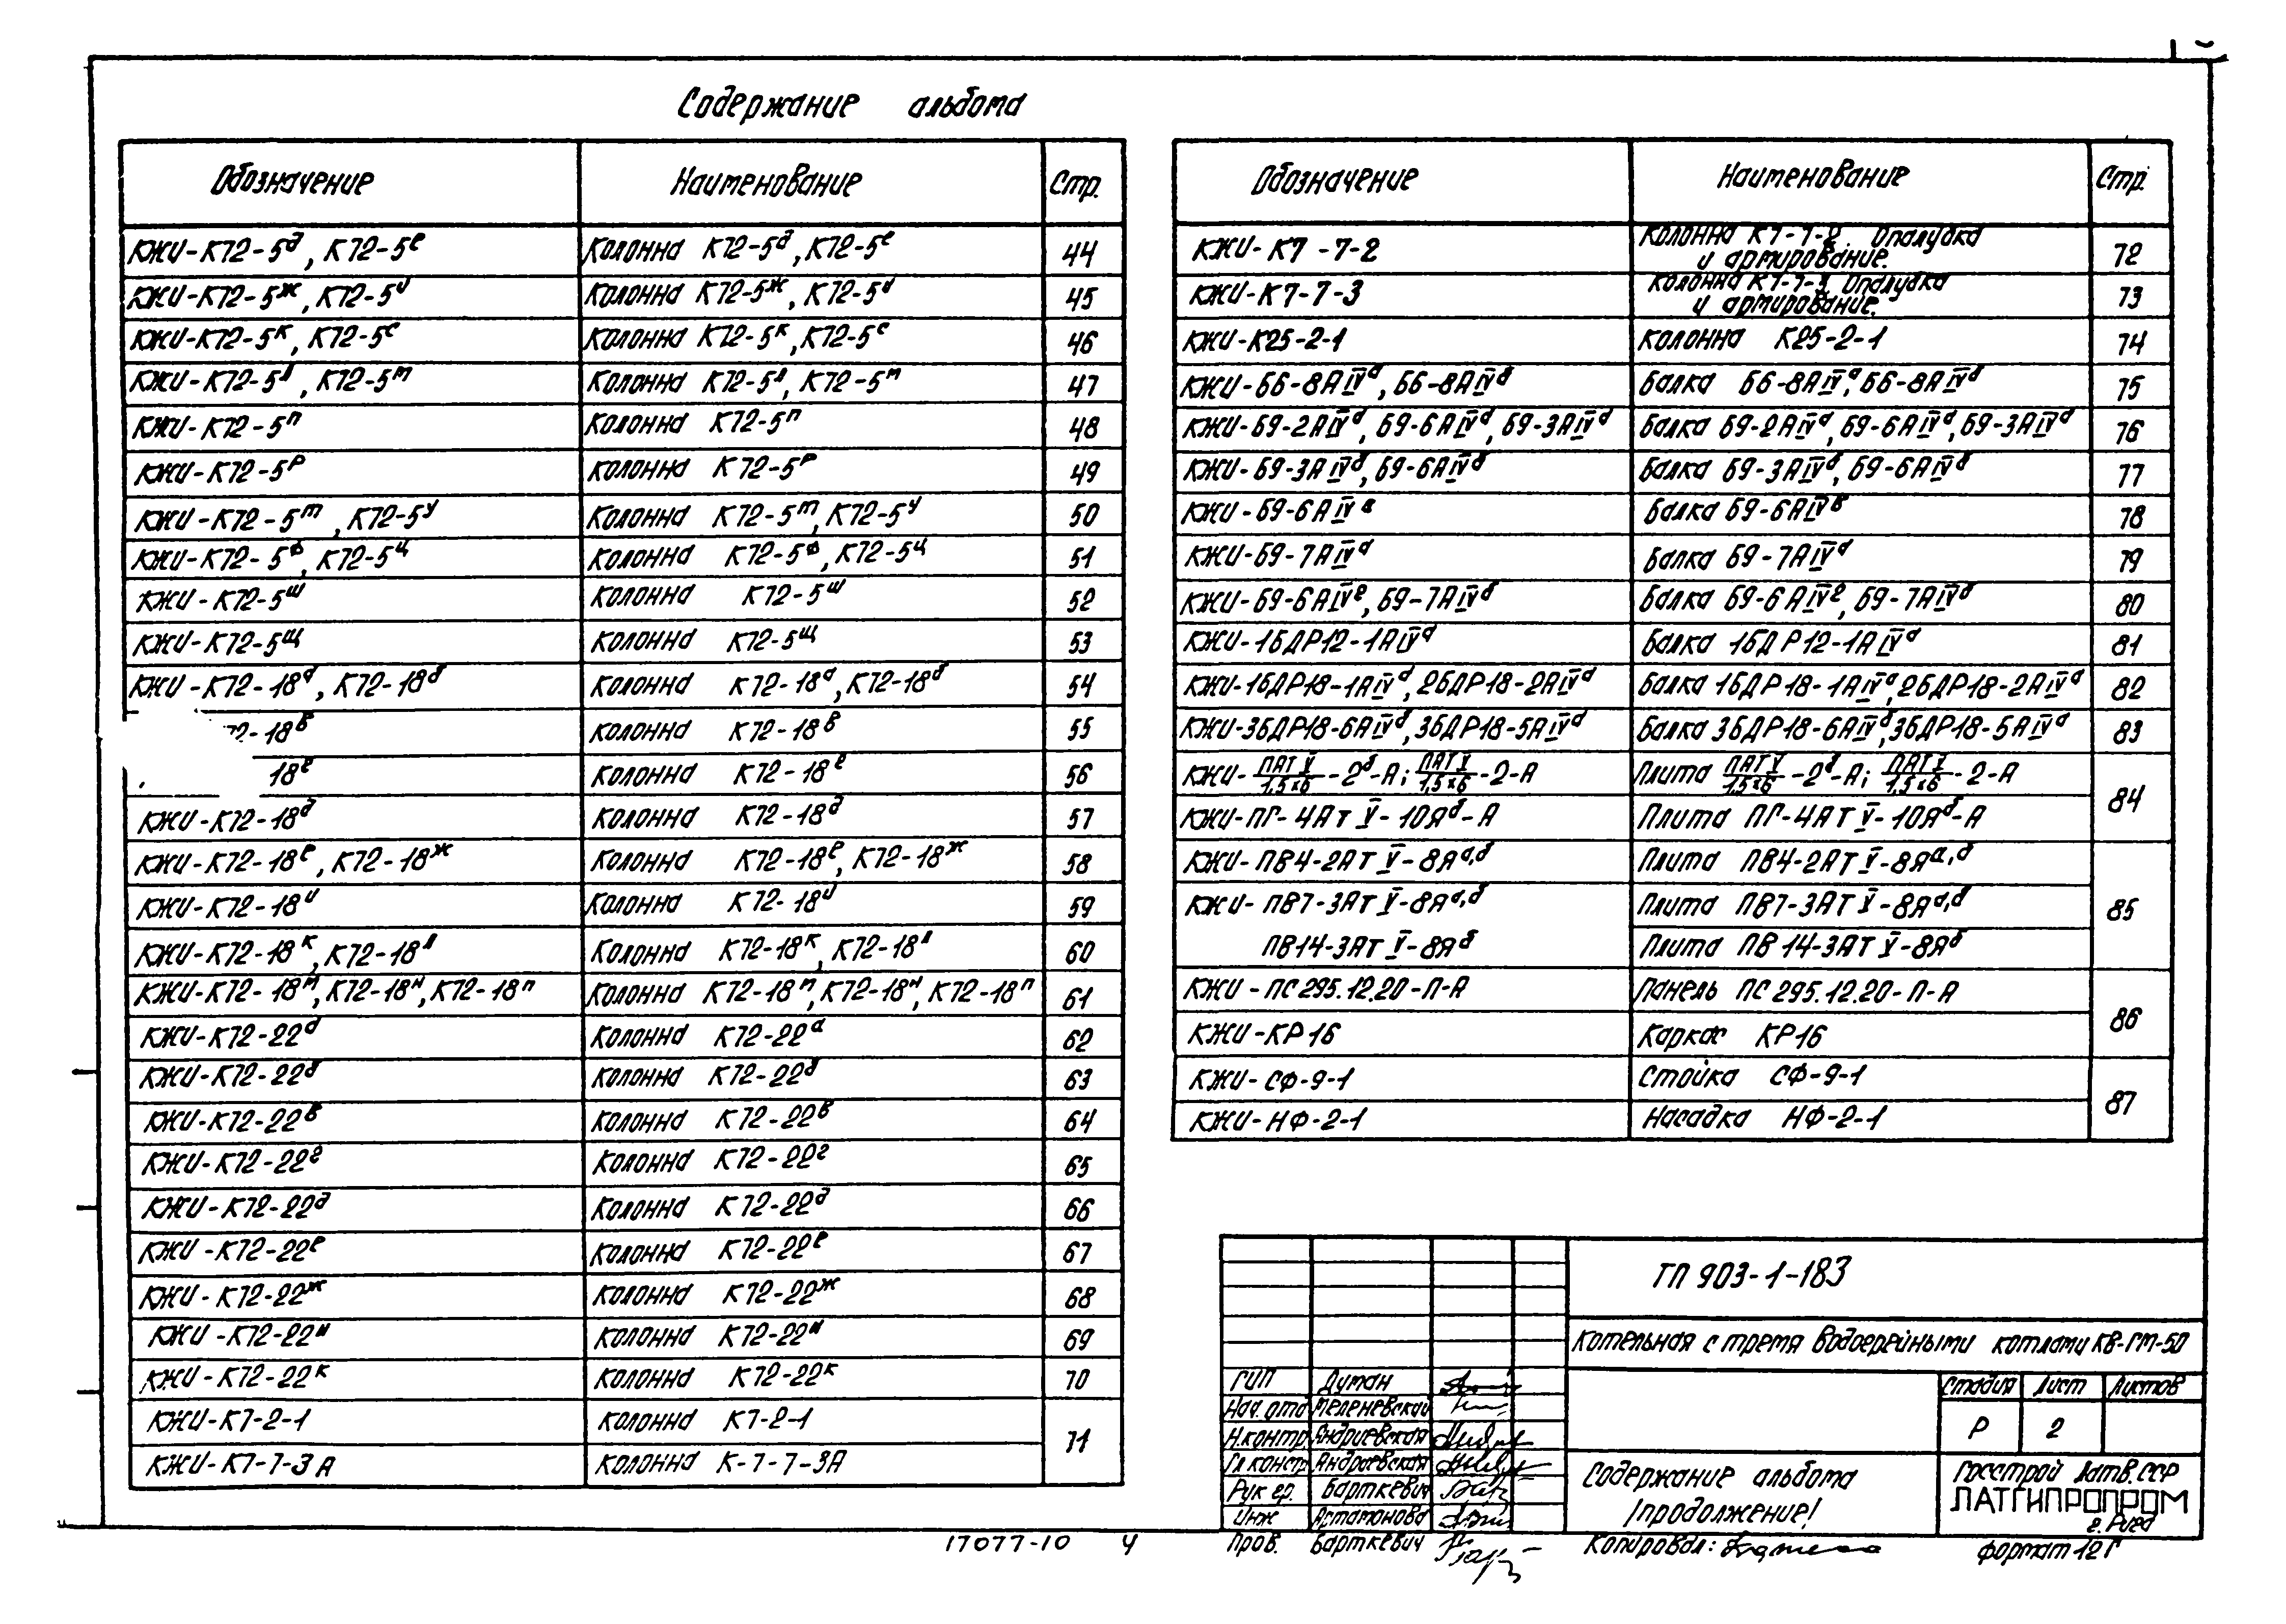 Содержание альбома
Обозначение Наименование Стр.
КЖИ-К72-5д, К72-5е Колонна К72-5д, К72-5е 44
КЖИ-К72-5ж, К72-5и Колонна К72-5ж, К72-5и 45
КЖИ-К72-5к, К72-5с Колонна К72-5к, К72-5с 46
КЖИ-К72-5л, К72-5м Колонна К72-5л, К72-5м 47
КЖИ-К72-5п Колонна К72-5п 48
КЖИ-К72-5р Колонна К72-5р 49
КЖИ-К72-5т, К72-5у Колонна К72-5т, К72-5у 50
КЖИ-К72-5ф, К72-5ц Колонна К72-5ф, К72-5ц 51
КЖИ-К72-5ш Колонна К72-5ш 52
КЖИ-К72-5щ Колонна К72-5щ 53
КЖИ-К72-18а, К72-18б Колонна К72-18а, К72-18б 54
72-18в Колонна К72-18в 55
18г Колонна К72-18г 56
КЖИ-К72-18д Колонна К72-18д 57
КЖИ-К72-18е, К72-18ж Колонна К72-18е, К72-18ж 58
КЖИ-К72-18и Колонна К72-18и 59
КЖИ-К72-18к, К72-18л Колонна К72-18к, К72-18л 60
КЖИ-К72-18м, К72-18н, К72-18п Колонна К72-18м, К72-18н, К72-18п 61
КЖИ-К72-22а Колонна К72-22а 62
КЖИ-К72-22б Колонна К72-22б 63
КЖИ-К72-22в Колонна К72-22в 64
КЖИ-К72-22г Колонна К72-22г 65
КЖИ-К72-22д Колонна К72-22д 66
КЖИ-К72-22е Колонна К72-22е 67
КЖИ-К72-22ж Колонна К72-22ж 68
КЖИ-К72-22и Колонна К72-22и 69
КЖИ-К72-22к Колонна К72-22к 70
КЖИ-К7-2-1 Колонна К7-2-1 71
КЖИ-К7-7-3А Колонна К-7-7-3А
Обозначение Наименование Стр.
КЖИ-К7-7-2 Колонна К7-7-2. Опалубка
и армирование. 72
КЖИ-К7-7-3 Колонна К7-7-3. Опалубка
и армирование. 73
КЖИ-К25-2-1 Колонна К25-2-1 74
КЖИ-Б6-8АIVа, Б6-8АIVб Балка Б6-8АIVа, Б6-8АIVб 75
КЖИ-Б9-2АIVа, Б9-6АIVа, Б9-3АIVа Балка Б9-2АIVа, Б9-6АIVа, Б9-3АIVа 76
КЖИ-Б9-3АIVб, Б9-6АIVб Балка Б9-3АIVб, Б9-6АIVб 77
КЖИ-Б9-6АIVв Балка Б9-6АIVв 78
КЖИ-Б9-7АIVа Балка Б9-7АIVа 79
КЖИ-Б9-6АIVг, Б9-7АIVб Балка Б9-6АIVг, Б9-7АIVб 80
КЖИ-1БДР12-1АIVа Балка 1БДР12-1АIVа 81
КЖИ-1БДР18-1АIVа, 2БДР18-2АIVа Балка 1БДР18-1АIVа, 2БДР18-2АIVа 82
КЖИ-3БДР18-6АIVб, 3БДР18-5АIVа Балка 3БДР18-6АIVб, 3БДР18-5АIVа 83
КЖИ-ПАТV/1,5х6-2б-А; ПАТV/1,5х6-2-А Плита ПАТV/1,5х6-2б-А; ПАТV/1,5х6-2-А 84
КЖИ-ПГ-4АтV-10Яб-А Плита ПГ-4АтV-10Яб-А
КЖИ-ПВ4-2АтV-8Яа,б Плита ПВ4-2АтV-8Яа,б 85
КЖИ-ПВ7-3АтV-8Яа,б Плита ПВ7-3АтV-8Яа,б
ПВ14-3АтV-8Яб Плита ПВ14-3АтV-8Яб
КЖИ-ПС295.12.20-П-А Панель ПС295.12.20-П-А 86
КЖИ-КР16 Каркас КР16
КЖИ-СФ-9-1 Стойка СФ-9-1 87
КЖИ-НФ-2-1 Насадка НФ-2-1
ТП 903-1-183
Котельная с тремя водогрейными котлами КВ-ГМ-50
ГИП Думан
Нач. отд Меленевский
Н.контр. Андриевская
Гл.констр Андриевская
Рук гр. Барткевич
Инж Артамонова
Пров. Барткевич
Стадия Лист Листов
Р 2
Содержание альбома
/продолжение/
Госстрой Латв.ССР
ЛАТГИПРОПРОМ
г. Рига
17077-10 4
Копировал:
формат 12Г